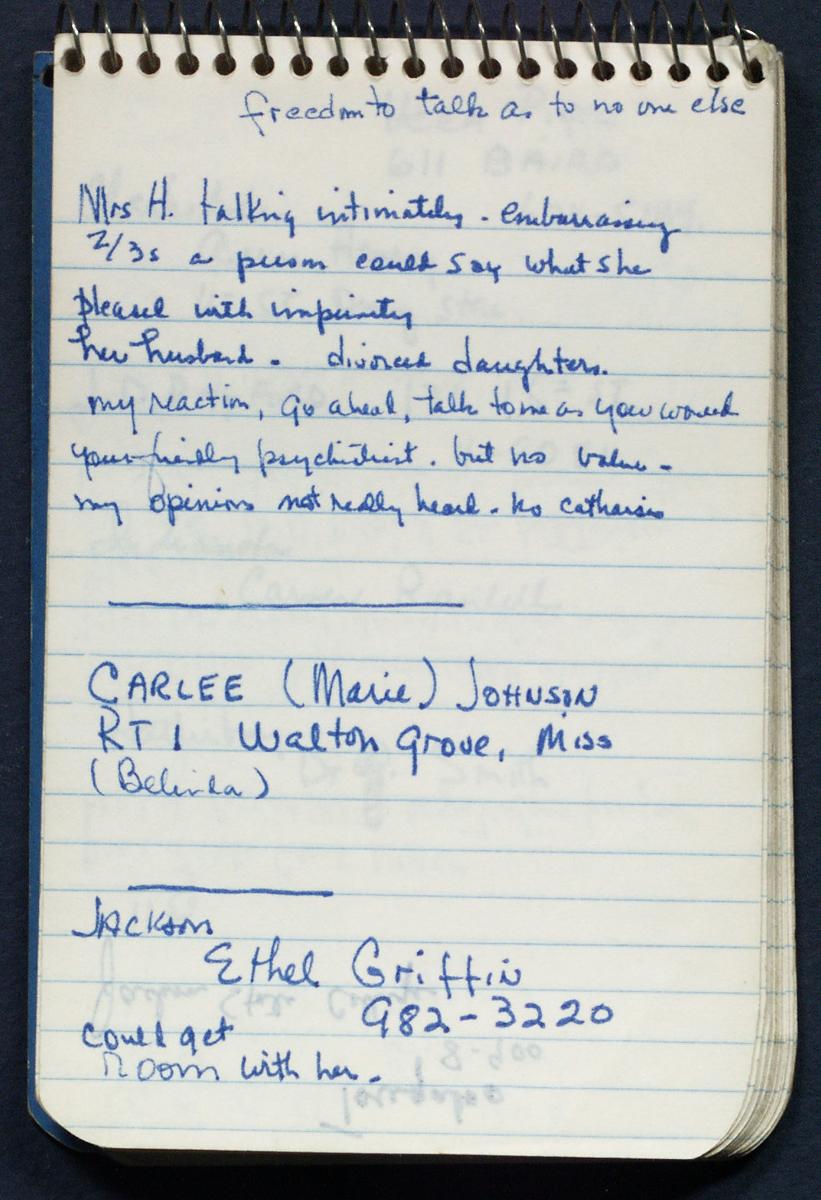 freedom to talk as to no one else
Mrs H. talking intimately - embarrassing
2/3s a person could say what she
pleased with impunity
her husband - divorced daughters.
my reaction, go ahead, talk to me as you would
your friendly psychiatrist. but no value -
my opinions not really heard - no catharsis
CARLEE (Marie) JOHNSON
RT 1 Walton Grove, Miss
(Belinda)
JACKSON
Ethel Griffin
982-3220
could get
Room with her.